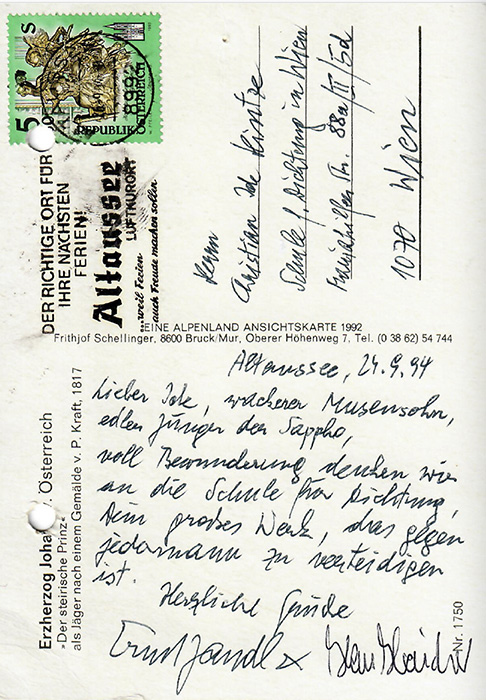 5 S
REPUBLIK ÖSTERREICH
8992
DER RICHTIGE ORT FÜR
IHRE NÄCHSTEN
FERIEN!
Altaussee
LUFTKURORT
...weil Ferien
auch Freude machen sollen
Herrn
Christian Ide Hintze
Schule f. Dichtung in Wien
Mariahilfer Str. 88a/III/5d
1070 Wien
EINE ALPENLAND ANSICHTSKARTE 1992
Frithjof Schellinger, 8600 Bruck/Mur, Oberer Höhenweg 7, Tel. (0 38 62) 54 744
Erzherzog Joha Österreich
»Der steirische Prinz«
als Jäger nach einem Gemälde v. P. Kraft, 1817
Altaussee, 24.9.94
Lieber Ide, wackerer Musensohn,
edler Jünger der Sappho,
voll Bewunderung denken wir
an die Schule für Dichtung,
Dein großes Werk, das gegen
jedermann zu verteidigen
ist.
Herzliche Grüße
Ernst Jandl
Nr. 1750